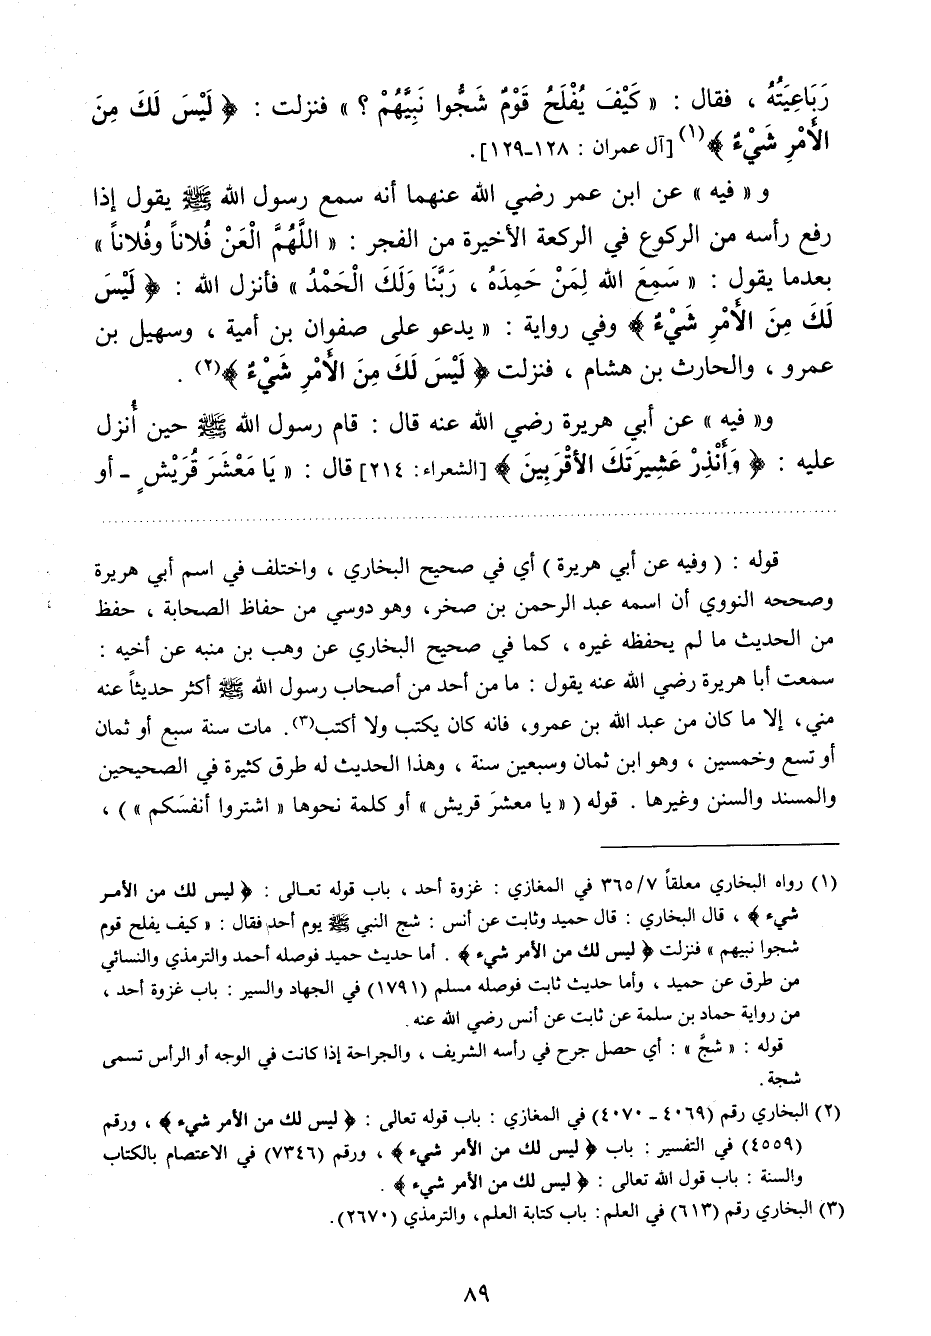 رَبَاعِيَتُهُ ، فقال : « كَيْفَ يُفْلَحُ قَوْمٌ شَجُّوا نَبِيَّهُمْ ؟ » فنزلت : ﴿ لَيْسَ لَكَ مِنَ
الأَمْرِ شَيْءٌ ﴾(١) [آل عمران : ١٢٨-١٢٩].
و« فيه » عن ابن عمر رضي الله عنهما أنه سمع رسول الله ﷺ يقول إذا
رفع رأسه من الركوع في الركعة الأخيرة من الفجر : « اللَّهُمَّ الْعَنْ فُلاناً وفُلاناً »
بعدما يقول : « سَمِعَ الله لِمَنْ حَمِدَهُ ، رَبَّنَا وَلَكَ الْحَمْدُ » فأنزل الله : ﴿ لَيْسَ
لَكَ مِنَ الأَمْرِ شَيْءٌ ﴾ وفي رواية : « يدعو على صفوان بن أمية ، وسهيل بن
عمرو ، والحارث بن هشام ، فنزلت ﴿ لَيْسَ لَكَ مِنَ الأَمْرِ شَيْءٌ ﴾(٢) .
و« فيه » عن أبي هريرة رضي الله عنه قال : قام رسول الله ﷺ حين أُنزل
عليه : ﴿ وَأَنْذِرْ عَشِيرَتَكَ الأَقْرَبِينَ ﴾ [الشعراء: ٢١٤] قال : « يَا مَعْشَرَ قُرَيْشٍ - أو
قوله : ( وفيه عن أبي هريرة ) أي في صحيح البخاري ، واختلف في اسم أبي هريرة
وصححه النووي أن اسمه عبد الرحمن بن صخر، وهو دوسي من حفاظ الصحابة ، حفظ
من الحديث ما لم يحفظه غيره ، كما في صحيح البخاري عن وهب بن منبه عن أخيه :
سمعت أبا هريرة رضي الله عنه يقول : ما من أحد من أصحاب رسول الله ﷺ أكثر حديثاً عنه
مني، إلا ما كان من عبد الله بن عمرو، فانه كان يكتب ولا أكتب(٣). مات سنة سبع أو ثمان
أو تسع وخمسين ، وهو ابن ثمان وسبعين سنة ، وهذا الحديث له طرق كثيرة في الصحيحين
والمسند والسنن وغيرها . قوله ( « يا معشرَ قريش » أو كلمة نحوها « اشتروا أنفسَكم » ) ،
(١) رواه البخاري معلقاً ٣٦٥/٧ في المغازي : غزوة أحد ، باب قوله تعالى : ﴿ ليس لك من الأمر
شيء ﴾ ، قال البخاري : قال حميد وثابت عن أنس : شج النبي ﷺ يوم أحد فقال : « كيف يفلح قوم
شجوا نبيهم » فنزلت ﴿ ليس لك من الأمر شيء ﴾ . أما حديث حميد فوصله أحمد والترمذي والنسائي
من طرق عن حميد ، وأما حديث ثابت فوصله مسلم (١٧٩١) في الجهاد والسير : باب غزوة أحد ،
من رواية حماد بن سلمة عن ثابت عن أنس رضي الله عنه .
قوله : « شجَّ » : أي حصل جرح في رأسه الشريف ، والجراحة إذا كانت في الوجه أو الرأس تسمى
شجة .
(٢) البخاري رقم (٤٠٦٩ - ٤٠٧٠) في المغازي : باب قوله تعالى : ﴿ ليس لك من الأمر شيء ﴾ ، ورقم
(٤٥٥٩) في التفسير : باب ﴿ ليس لك من الأمر شيء ﴾ ، ورقم (٧٣٤٦) في الاعتصام بالكتاب
والسنة : باب قول الله تعالى : ﴿ ليس لك من الأمر شيء ﴾ .
(٣) البخاري رقم (٦١٣) في العلم: باب كتابة العلم، والترمذي (٢٦٧٠).
٨٩